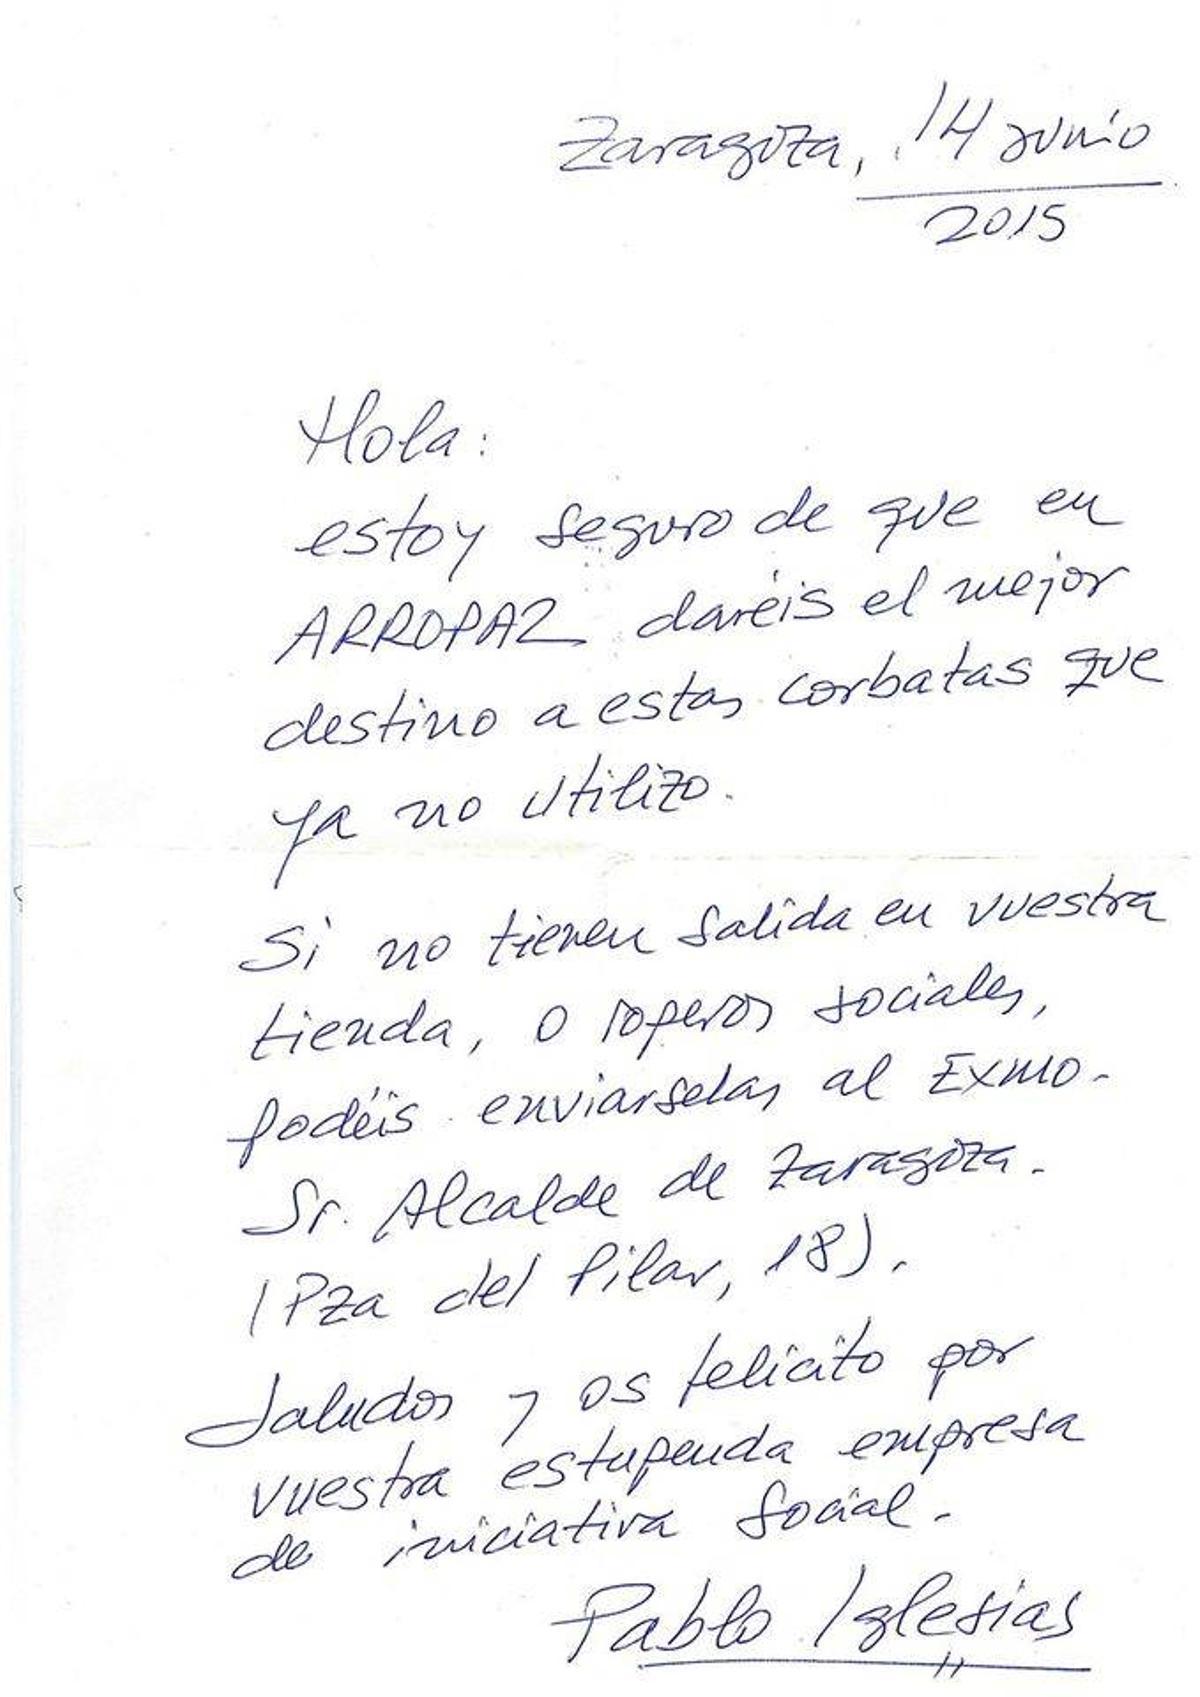 Zaragoza, 14 junio
2015
Hola:
estoy seguro de que en
ARROPAZ daréis el mejor
destino a estas corbatas que
ya no utilizo.
Si no tienen salida en vuestra
tienda, o roperos sociales,
podéis enviarselas al Exmo.
Sr. Alcalde de Zaragoza.
(Pza del Pilar, 18).
Saludos y os felicito por
vuestra estupenda empresa
de iniciativa social.
Pablo Iglesias